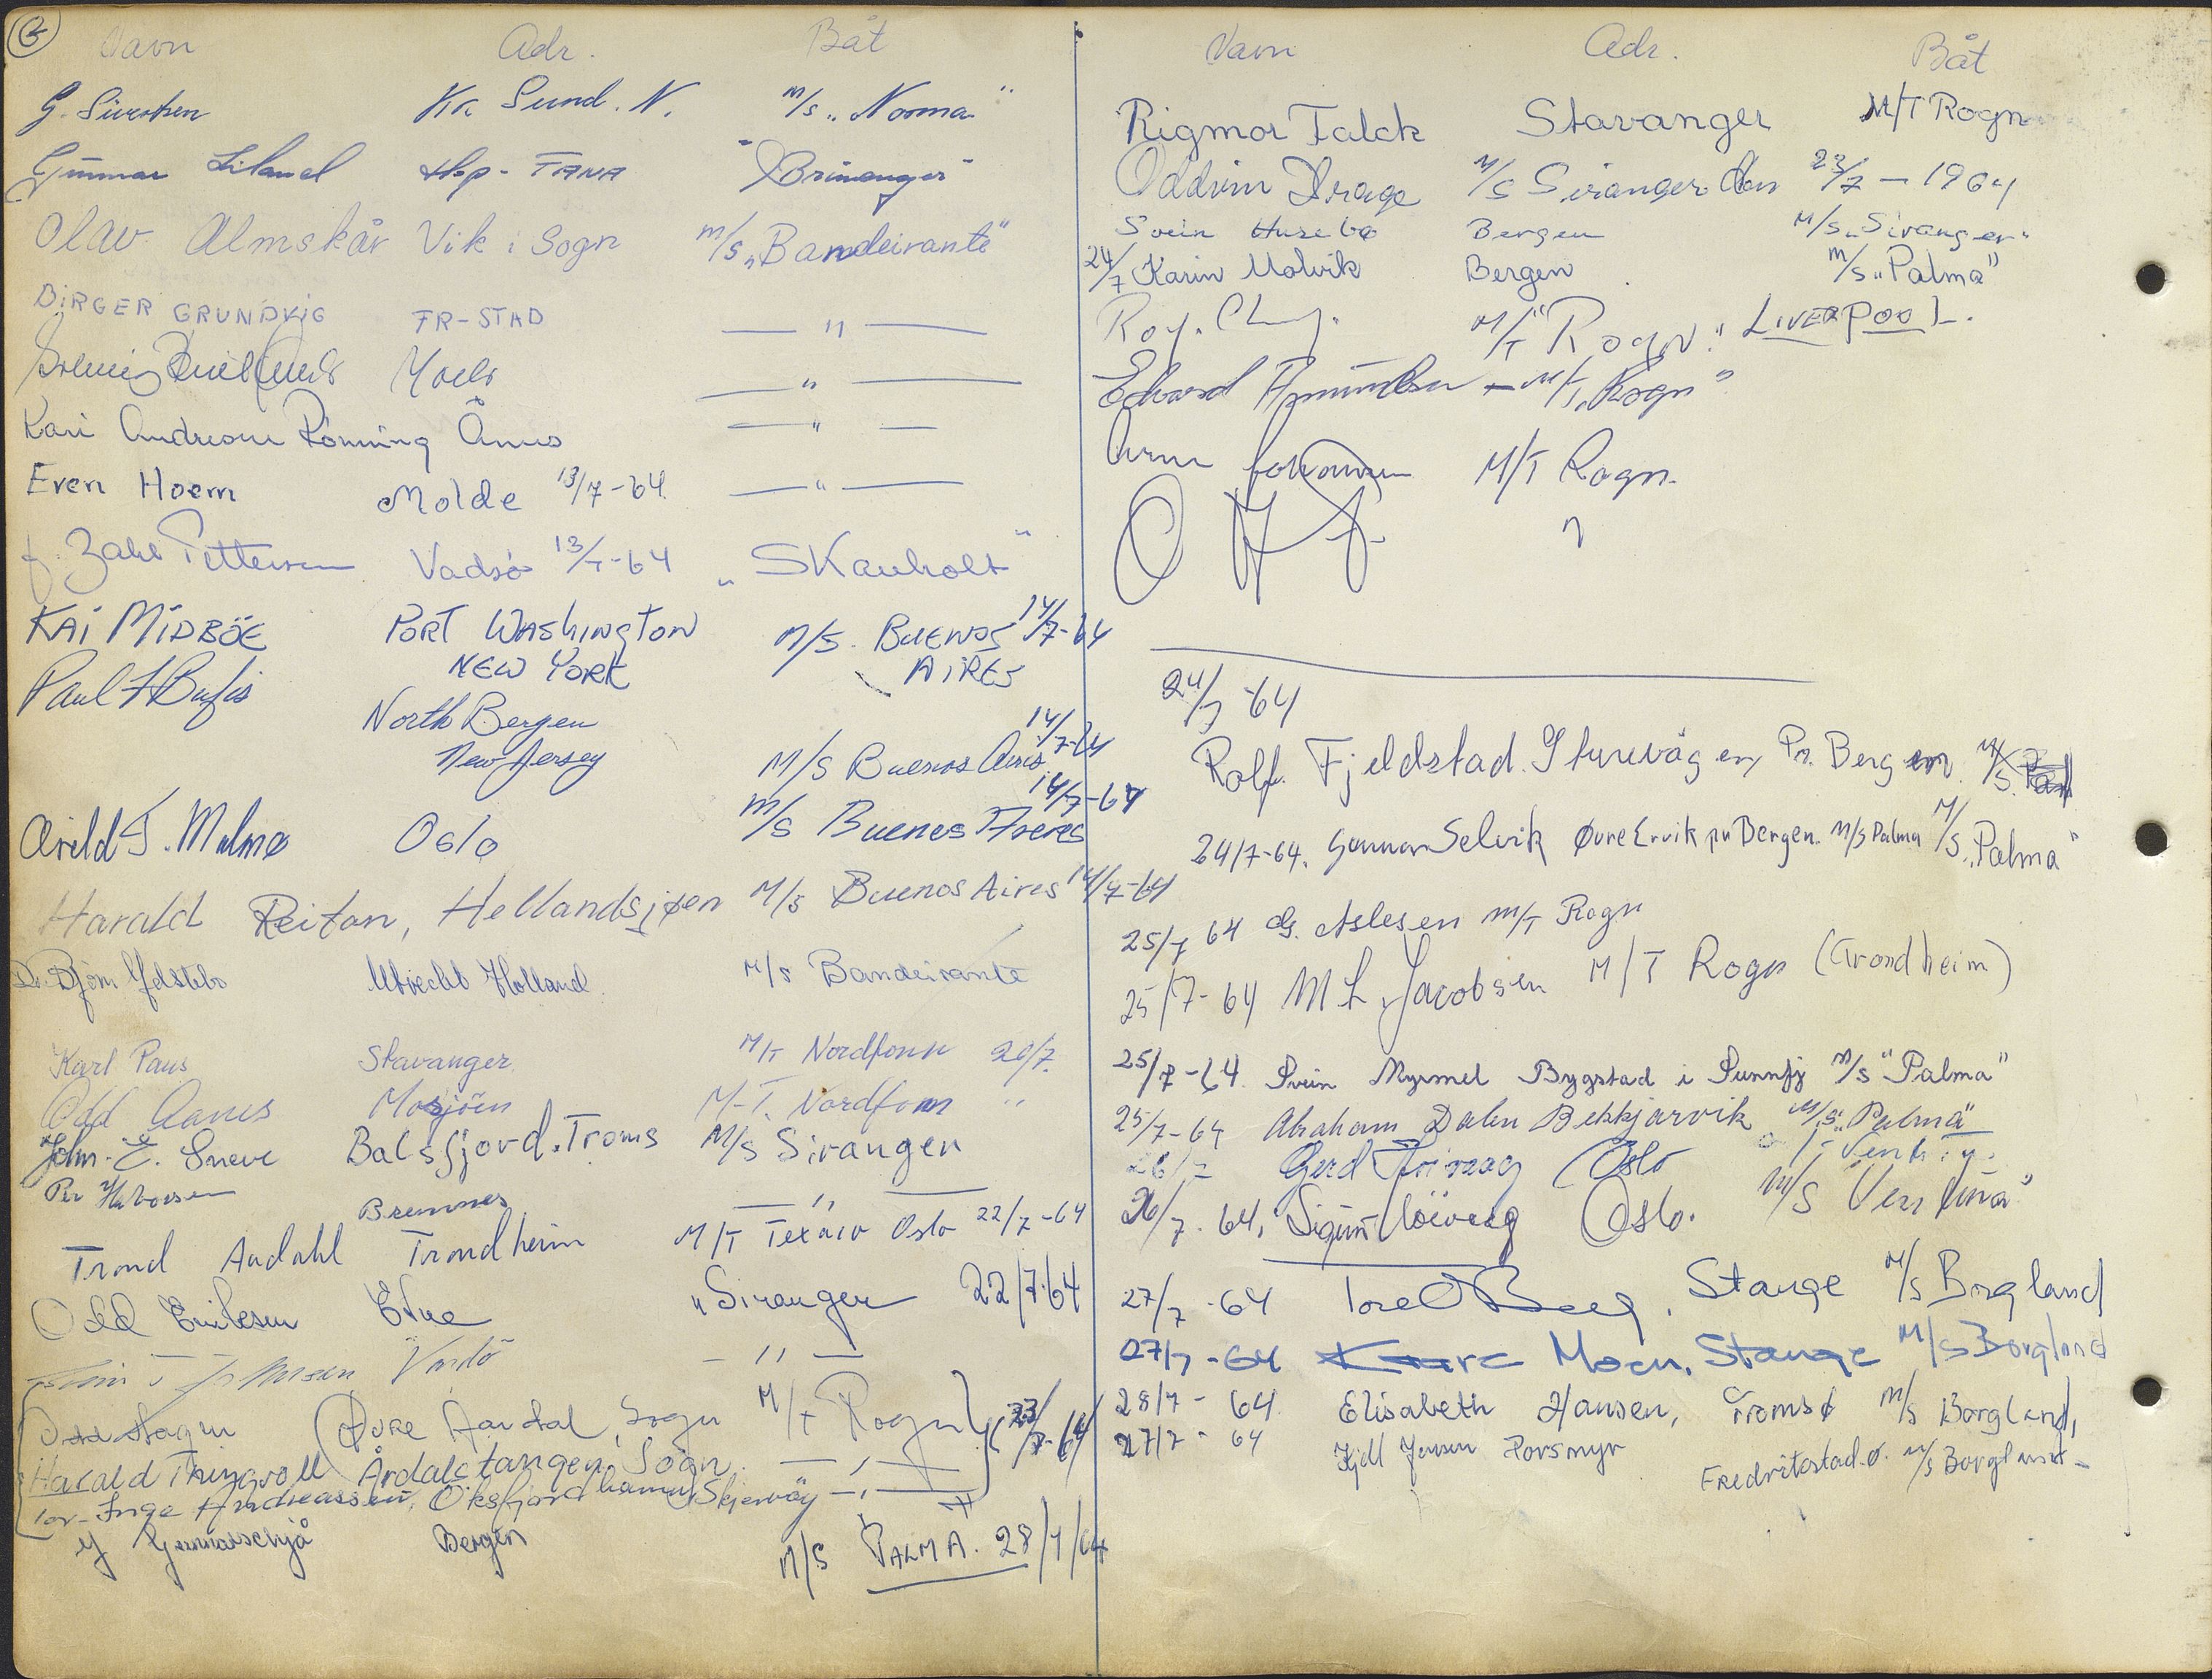 Navn Adr. Båt
G. Sivertsen Kr. Sund. N. M/S „Norma"
Gunnar Liland Hop - FANA "Brimanger"
Olav Almskår Vik i Sogn M/S „Bandeirante"
BIRGER GRUNDVIG FR-STAD — " —
— " —
Kari Andreane Rönning Ånes — " —
Even Hoem Molde 13/7-64 — " —
J. Zahl Pettersen Vadsö 13/7-64 „SKauholt"
KAI MIDBÖE PORT WASHINGTON M/S. BUENOS 14/7-64
NEW YORK AIRES
Paul
North Bergen
New Jersey M/S Buenos Aires 14/7-64
Arild J. Malmo Oslo M/S Buenos Aires 14/7-64
Harald Reitan, Hellandsjøen M/S Buenos Aires 14/7-64
Dr. Björn Utrecht Holland M/S Bandeirante
Karl Paus Stavanger M/T Nordfonn 20/7.
Odd Aanes Mosjöen M-T. Nordfonn "
John. E. Sneve Balsfjord. Troms M/S Siranger
Per Halvorsen Bremnes — " —
Trond Audahl Trondheim M/T Texaco Oslo 22/7-64
Odd Eriksen Etne „Siranger 22/7-64
Johnsen Vardö — " —
Odd Hagen Øvre Aardal, Sogn M/T Rogn 23/7-64
Harald Thingvoll Årdalstangen, Sogn. — " —
Tor-Inge Andreassen, Oksfjordhamn, Skjervöy — " —
Bergen M/S PALMA. 28/7/64
Navn Adr. Båt
Rigmor Falck Stavanger M/T Rogn
Oddvin Drage M/S Siranger den 23/7 - 1964
Svein Husebø Bergen M/S „Siranger"
24/7 Karin Molvik Bergen M/S „Palma"
Roy. M/T "Rogn." LIVERPOOL.
Edvard Amundsen — M/T „Rogn"
Arne Johansen M/T Rogn.
24/7 -64
Rolf Fjeldstad. Sturevågen, Pr. Bergen. M/S.
24/7-64. Gunnar Selvik Øvre Ervik pr Bergen. M/S Palma M/S „Palma"
25/7 64 G. Aslesen M/T Rogn
25/7-64 M L Jacobsen M/T Rogn (Trondheim)
25/7-64. Svein Myrmel Bygstad i Sunnfj M/S "Palma"
25/7-64 Abraham Dalen Bekkjarvik M/S „Palma"
26/7 Gerd Oslo
26/7. 64, Oslo. M/S Ventura"
27/7 -64 Tore Berg, Stange M/S Borgland
27/7 -64 Kaare Moen, Stange M/S Borgland
28/7 - 64 Elisabeth Hansen, Tromsø M/S Borgland,
27/7 - 64 Kjell Jensen Fredrikstad.ø. M/S Borgland